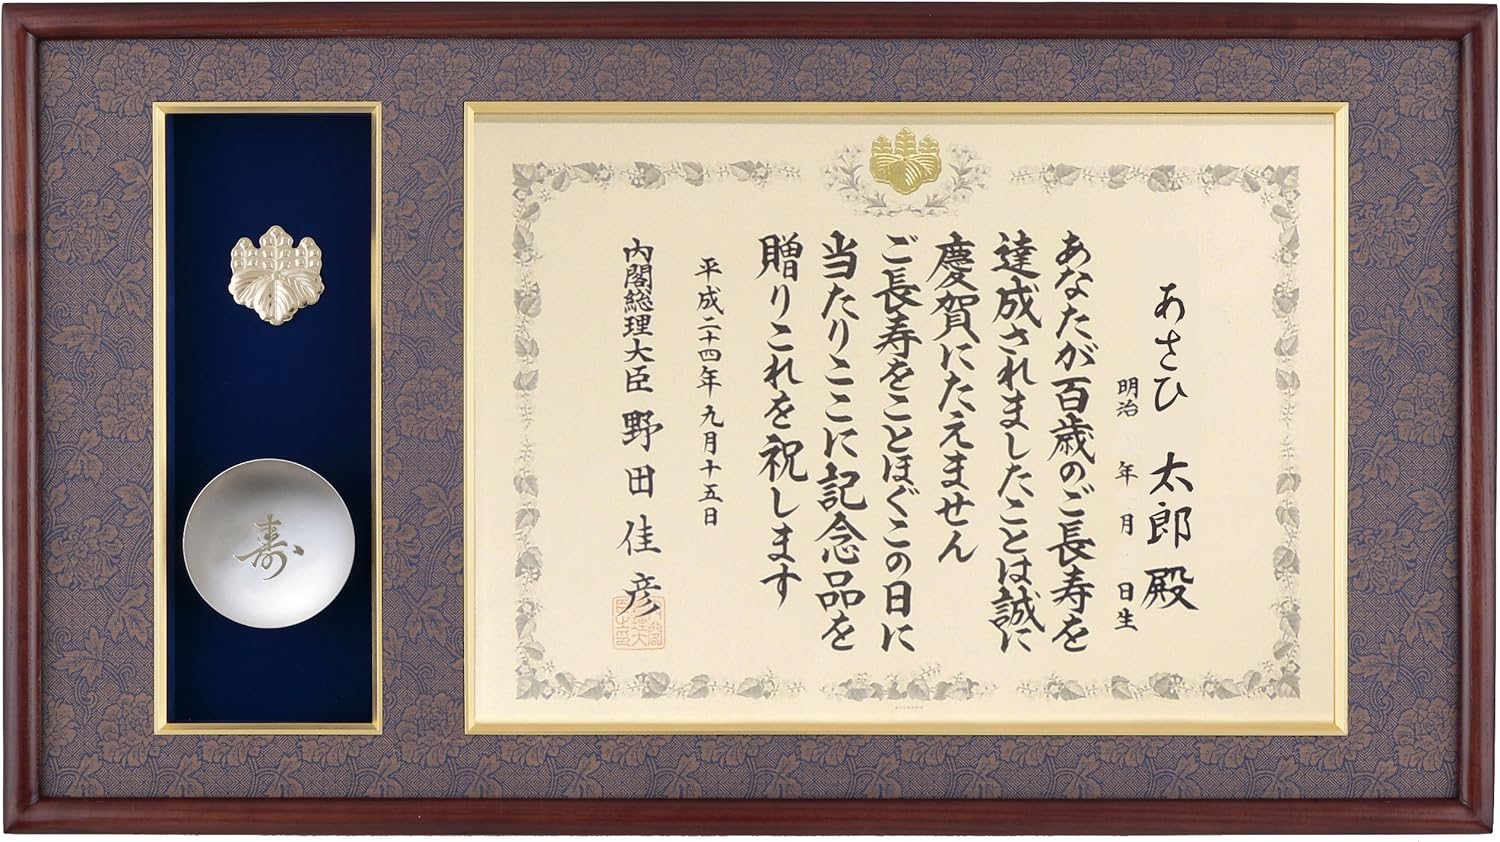 あさひ 太郎 殿
明治 年 月 日生
あなたが百歳のご長寿を
達成されましたことは誠に
慶賀にたえません
ご長寿をことほぐこの日に
当たりここに記念品を
贈りこれを祝します
平成二十四年九月十五日
内閣総理大臣 野田佳彦
寿